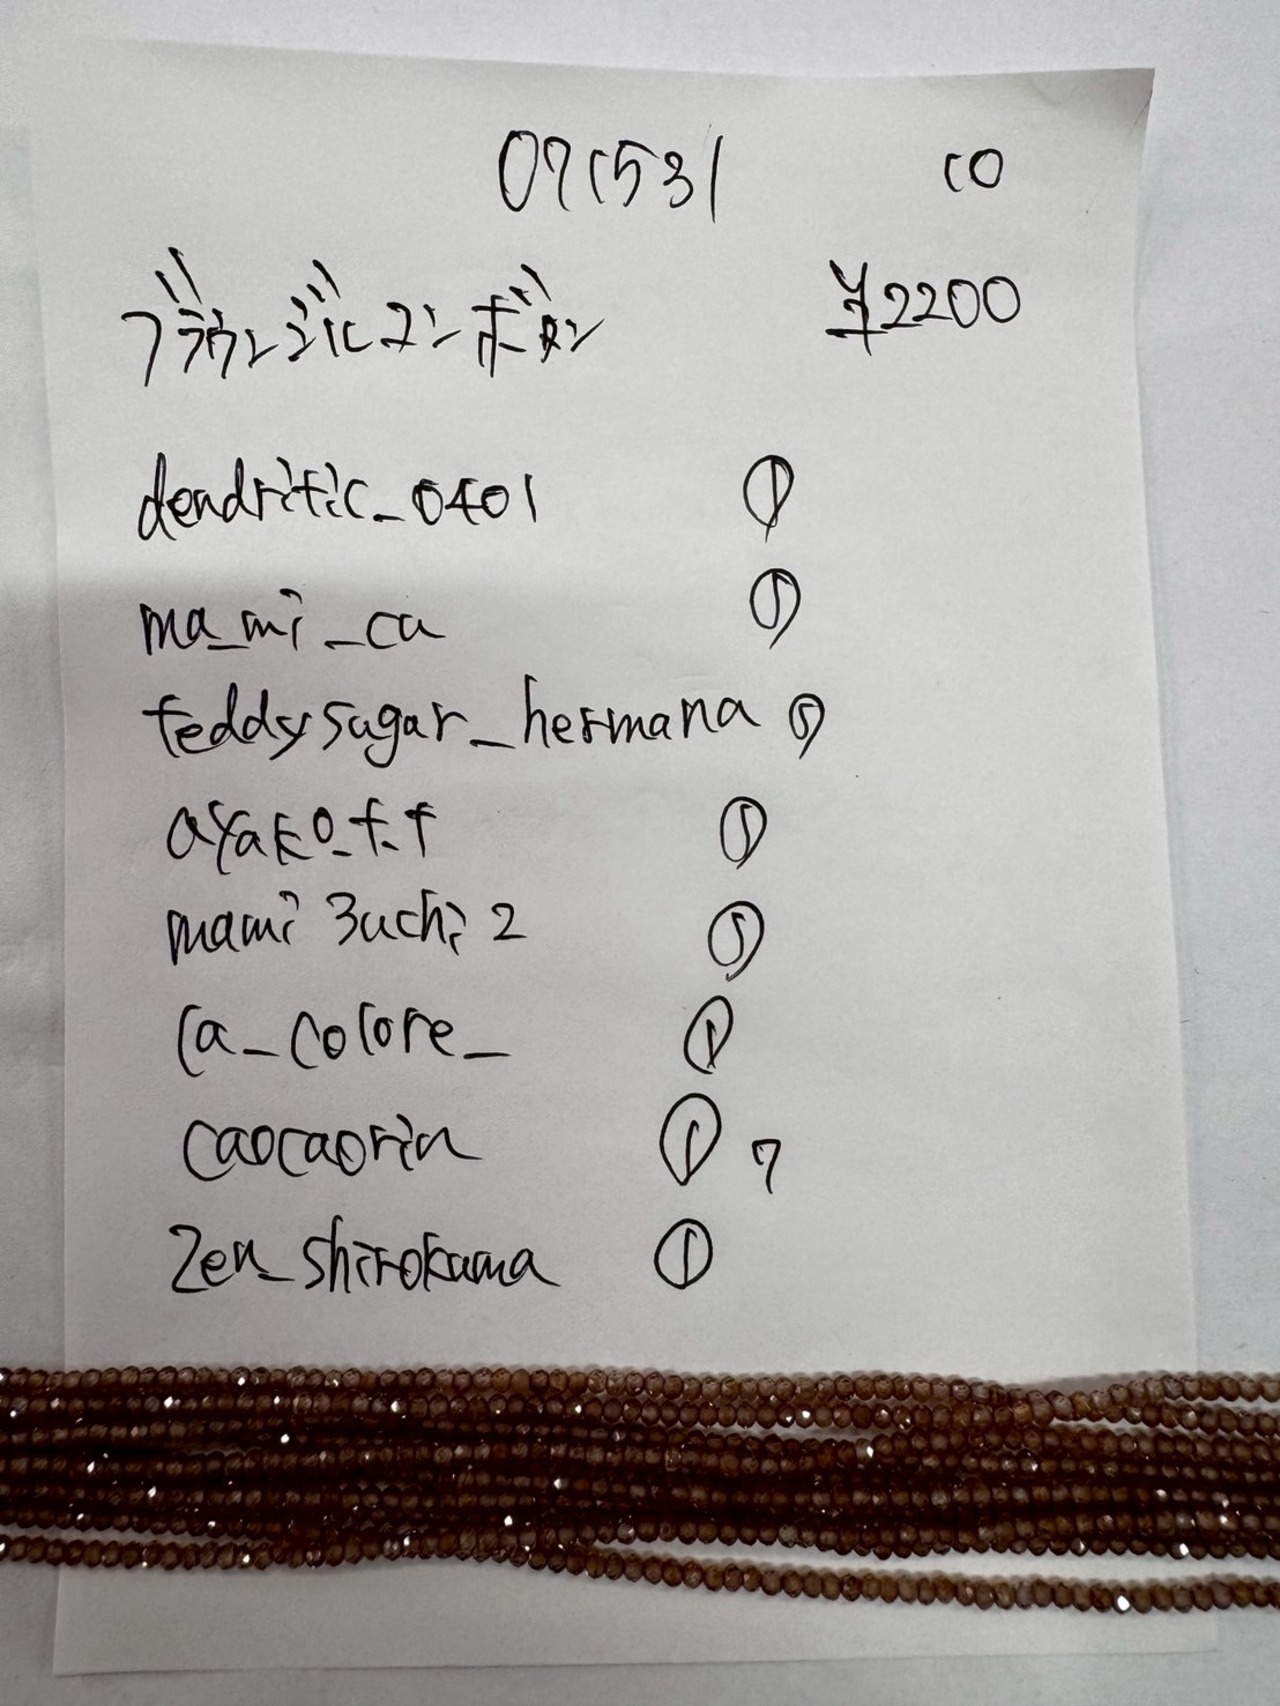 071531 10
ブラウンジルコンボタン ¥2200
dendritic_0401 ①
ma_mi_ca ①
teddysugar_hermana ①
ayako_t.t ①
mami3uchi2 ①
ca_colore_ ①
caocaorin ① 7
zen_shirokuma ①